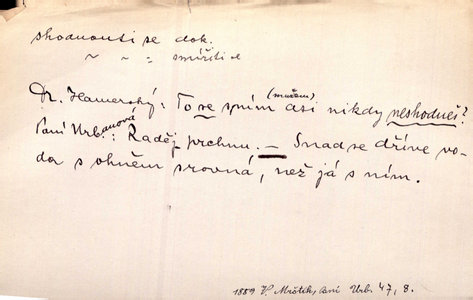 shodnouti se dok.
~ ~ = smířiti se
Dr. Hamerský: To se s ním (mužem) asi nikdy neshodneš?
Paní Urbanová: Raděj prchnu. — Snad se dříve vo-
da s ohněm srovná, než já s ním.
1889 V. Mrštík, Paní Urb. 47, 8.